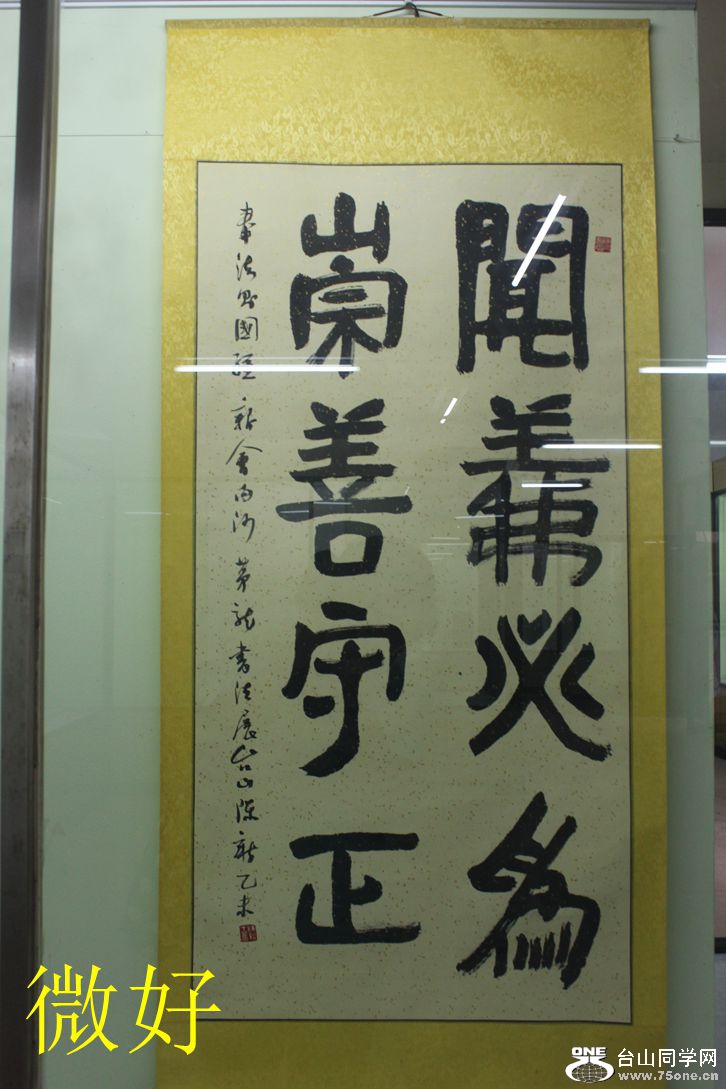 聞羛必為
崇善守正
國 新會白沙 茅龍書法展台山陳 乙未
微好
ONE 台山同学网
www.75one.cn